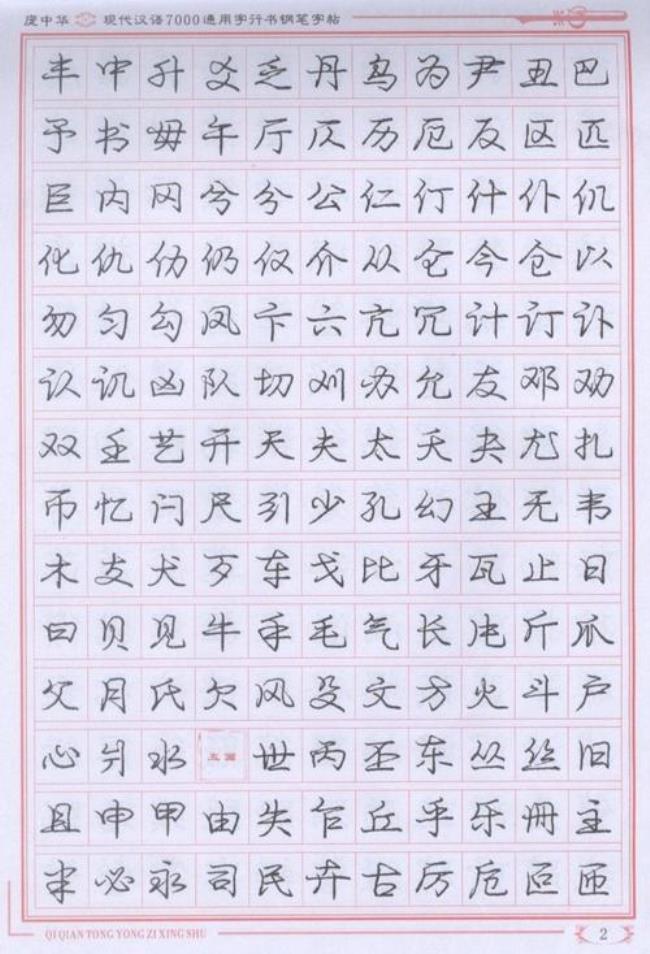 庞中华 现代汉语7000通用字行书钢笔字帖
丰中升爻乏丹鸟为尹丑巴
予书毋午厅仄历厄反区匹
巨内冈兮分公仁仃什仆仉
化仇仂仍仅介从仑今仓以
勿匀勾凤卞六亢冗计订讣
认讥凶队切刈办允友邓劝
双壬艺开天夫太夭夬尤扎
币忆闩尺引少孔幻王无韦
木支犬歹车戈比牙瓦止日
曰贝见牛手毛气长片斤爪
父月氏欠风殳文方火斗户
心爿水 五画 世丙丕东丛丝旧
且申甲由失乍丘乎乐册主
半必永司民卉古厉卮叵匝
QI QIAN TONG YONG ZI XING SHU
2